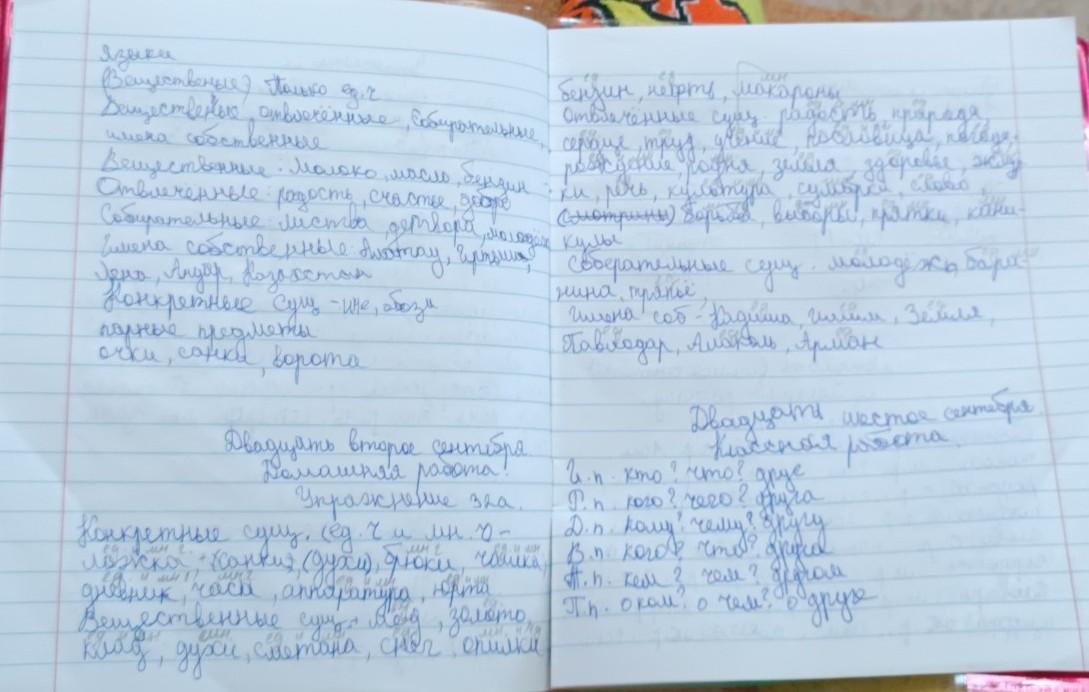 языки
(Вещественые) Только ед.ч
Вещественые, отвлечённые, собирательные,
имена собственные
Вещественные: молоко, масло, бензин
Отвлечённые: радость, счастье, добро
Собирательные листва детвора, молодёжь
Имена собственные:
Лена, Казахстан
Конкретные сущ -
парные предметы
очки, санки, ворота
Двадцать второе сентября
Домашняя работа.
Упражнение 32а.
Конкретные сущ. (ед. ч и мн. ч -
ложка (санки), (духи), брюки,
дневник, часы, аппаратура, юрта
Вещественные сущ - мёд, золото
клад, духи, сметана, снег опилки
бензин, нефть, макароны
Отвлечённые сущ радость, природа,
сердце, труд, учение, пословица, погода,
рождение, родня, земля здоровье,
ки, речь, культура, сумерки, слово,
(смотрины) борьба, выборы, прятки, кани-
кулы
Соберательные сущ молодёжь, бара-
нина,
Имена соб - Земля,
Павлодар, Арман
Двадцать шестое сентября
Классная работа.
И.п. кто? что? друг
Р.п. кого? чего? друга
Д.п. кому? чему? другу
В.п. кого? что? друга
Т.п. кем? чем? другом
П.п. о ком? о чем? о друге